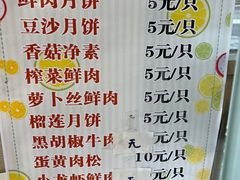 鲜肉月饼 5元/只
豆沙月饼 5元/只
香菇净素 5元/只
榨菜鲜肉 5元/只
萝卜丝鲜肉 5元/只
榴莲月饼 5元/只
黑胡椒牛肉 元 /只
蛋黄肉松 10元/只
小龙虾鲜肉 元/只